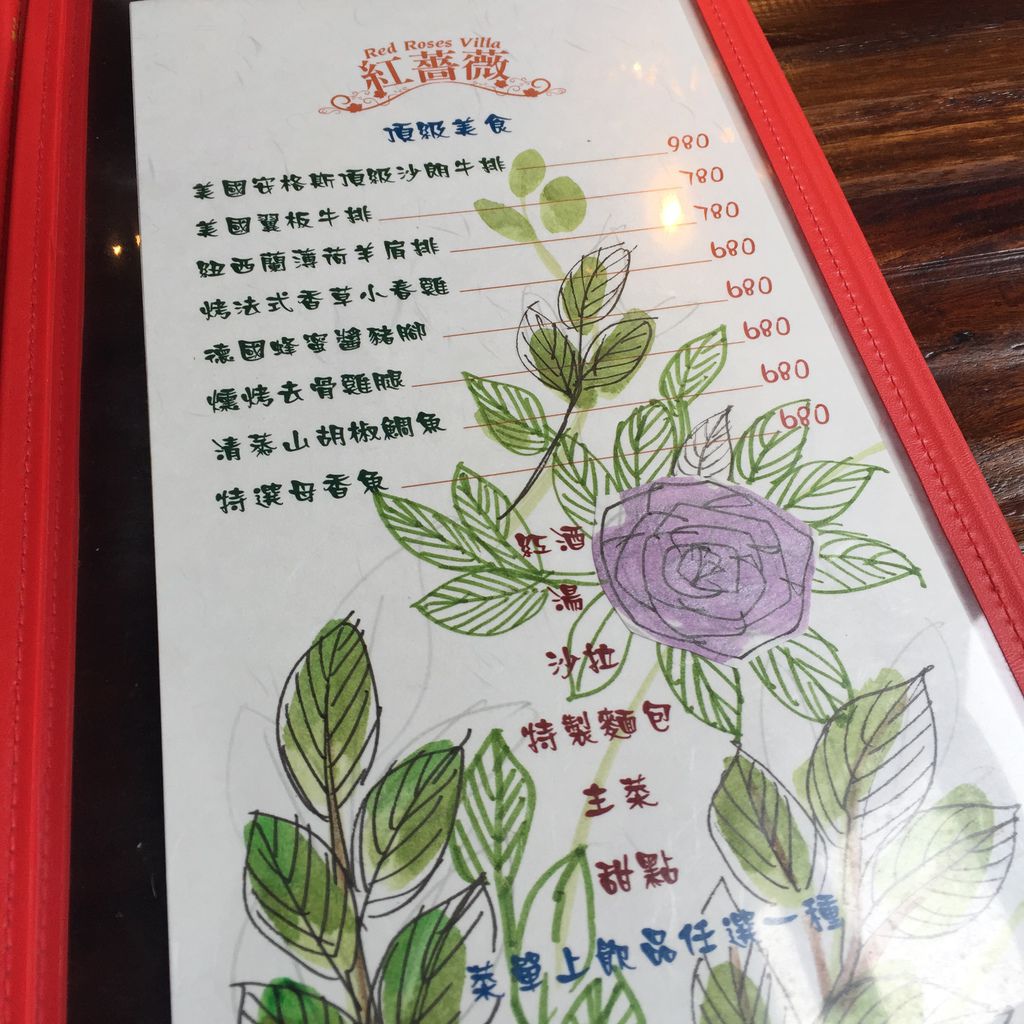 Red Roses Villa
紅薔薇
頂級美食
美國安格斯頂級沙朗牛排 980
美國翼板牛排 780
紐西蘭薄荷羊肩排 780
烤法式香草小春雞 680
德國蜂蜜醬豬腳 680
燻烤去骨雞腿 680
清蒸山胡椒鯛魚 680
特選母香魚 680
紅酒
湯
沙拉
特製麵包
主菜
甜點
菜單上飲品任選一種